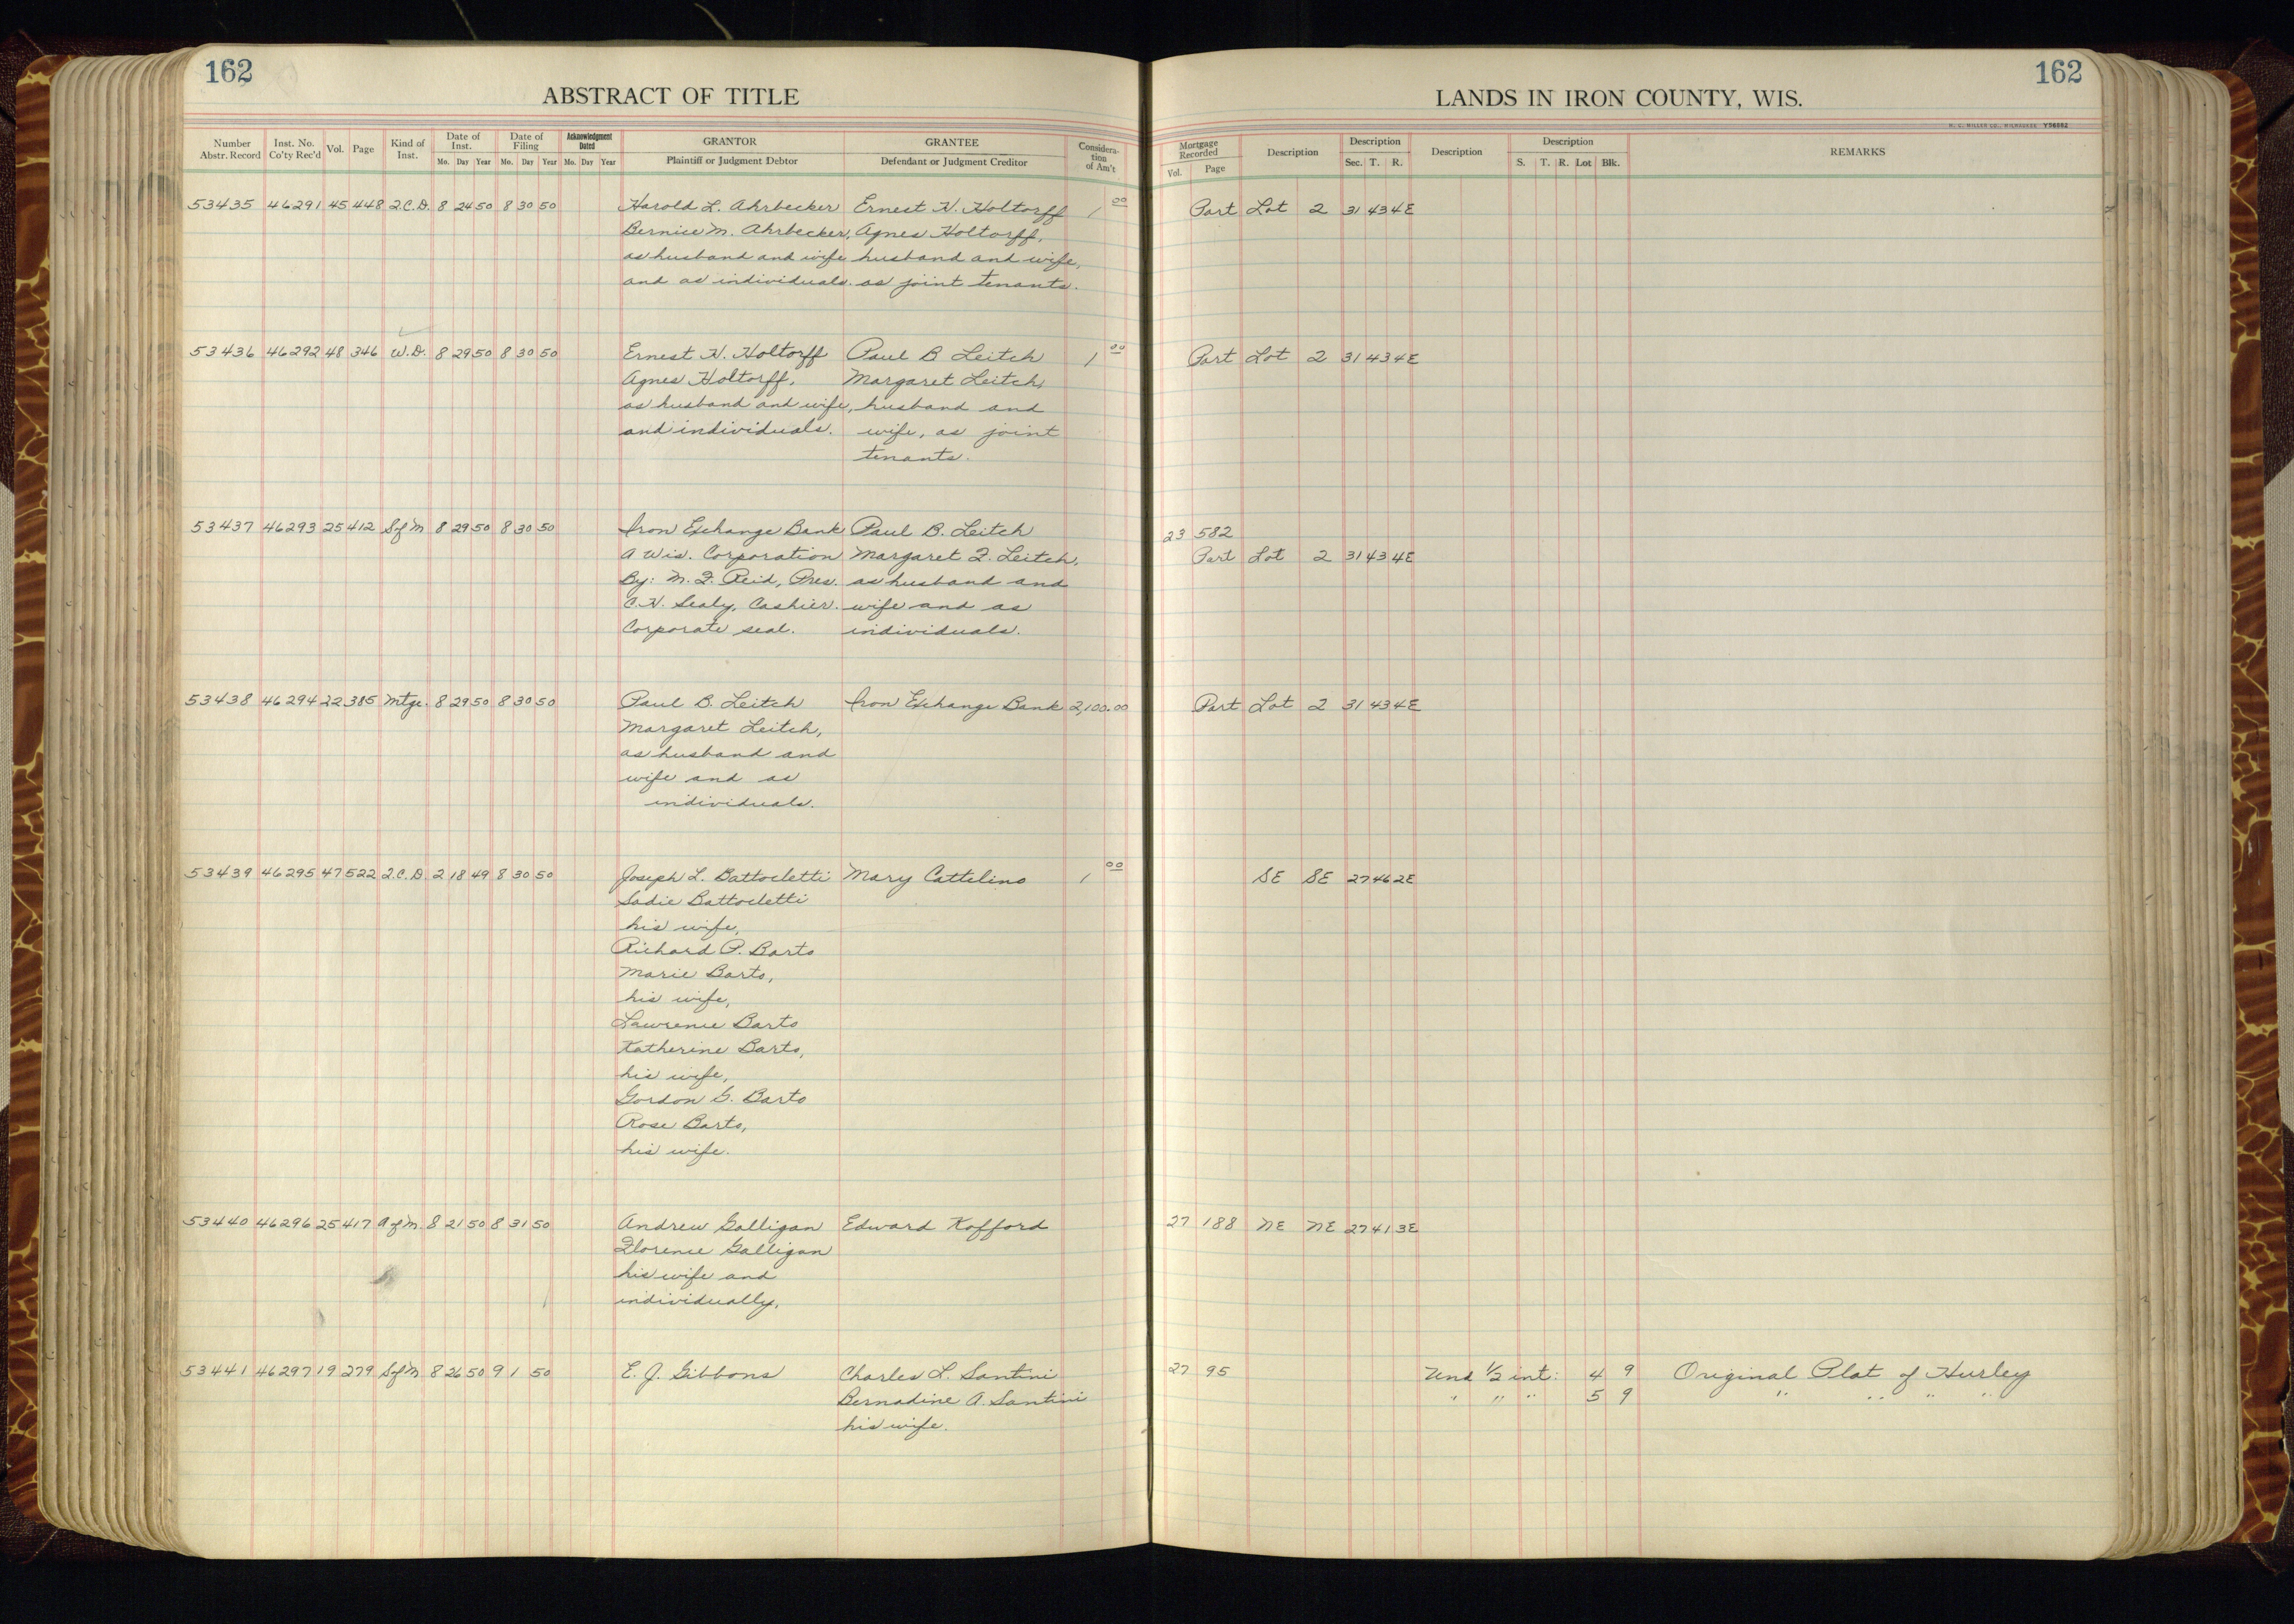 162
ABSTRACT OF TITLE
Number Abstr. Record
Inst. No. Co'ty Rec'd
Vol.
Page
Kind of Inst.
Date of Inst.
Mo. Day Year
Date of Filing
Mo. Day Year
Acknowledgment Dated
Mo. Day Year
GRANTOR
Plaintiff or Judgment Debtor
GRANTEE
Defendant or Judgment Creditor
Consideration of Am't
162
LANDS IN IRON COUNTY, WIS.
H. C. MILLER CO., MILWAUKEE Y56562
Mortgage Recorded
Vol. Page
Description
Description
Sec. T. R.
Description
Description
S. T. R. Lot Blk.
REMARKS
53435 46291 45 448 Q.C.D. 8 24 50 8 30 50 Harold L. Ahrbecker Ernest H. Holtorff 1 00 Part Lot 2 31 43 4E
Bernice M. Ahrbecker, Agnes Holtorff,
as husband and wife husband and wife,
and as individuals. as joint tenants.
53436 46292 48 346 W.D. 8 29 50 8 30 50 Ernest H. Holtorff Paul B Leitch 1 00 Part Lot 2 31 43 4E
Agnes Holtorff, Margaret Leitch,
as husband and wife, husband and
and individuals. wife, as joint
tenants.
53437 46293 25 412 S of M 8 29 50 8 30 50 Iron Exchange Bank Paul B. Leitch 23 582
A Wis. Corporation Margaret F. Leitch, Part Lot 2 31 43 4E
By: M. F. Reid, Pres. as husband and
C. H. Sealy, Cashier. wife and as
Corporate seal. individuals.
53438 46294 22 385 Mtge. 8 29 50 8 30 50 Paul B. Leitch Iron Exchange Bank 2,100.00 Part Lot 2 31 43 4E
Margaret Leitch,
as husband and
wife and as
individuals.
53439 46295 47 522 Q.C.D. 2 18 49 8 30 50 Joseph L. Battocletti Mary Cattelino 1 00 SE SE 27 46 2E
Sadie Battocletti
his wife,
Richard P. Barto
Marie Barto,
his wife,
Lawrence Barto
Katherine Barto,
his wife,
Gordon G. Barto
Rose Barto,
his wife.
53440 46296 25 417 A of M. 8 21 50 8 31 50 Andrew Galligan Edward Kofford 27 188 NE NE 27 41 3E
Florence Galligan
his wife and
individually,
53441 46297 19 279 S of M 8 26 50 9 1 50 E. J. Gibbons Charles L. Santini 27 95 Und 1/2 int: 4 9 Original Plat of Hurley
Bernadine A. Santini " " " 5 9 " " " "
his wife.